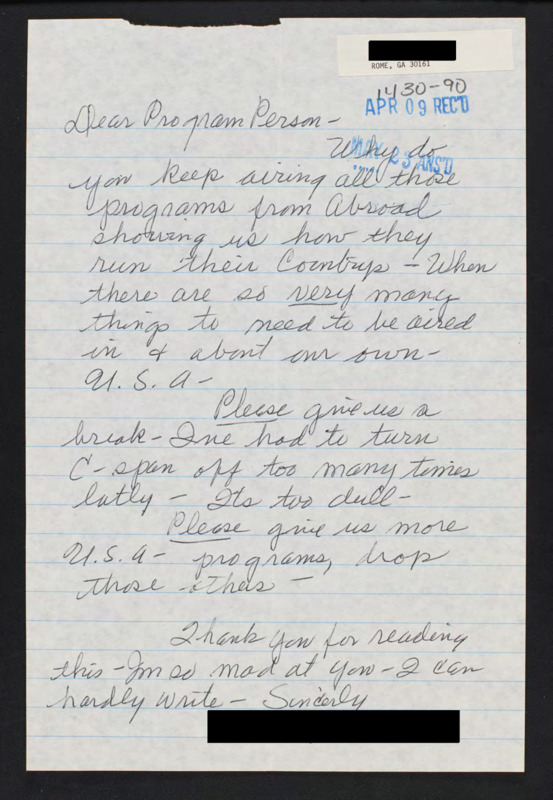 ROME, GA 30161
1430-90
APR 09 REC'D
Dear Program Person-
Why do
MAY 23 ANS'D
you keep airing all those
programs from Abroad
showing us how they
run their Countrys - When
there are so very many
things to need to be aired
in & about our own-
U.S.A-
Please give us a
break- Ive had to turn
C-span off too many times
latly - Its too dull-
Please give us more
U.S.A- programs, drop
those others -
Thank you for reading
this-Im so mad at you-I can
hardly write- Sincerly